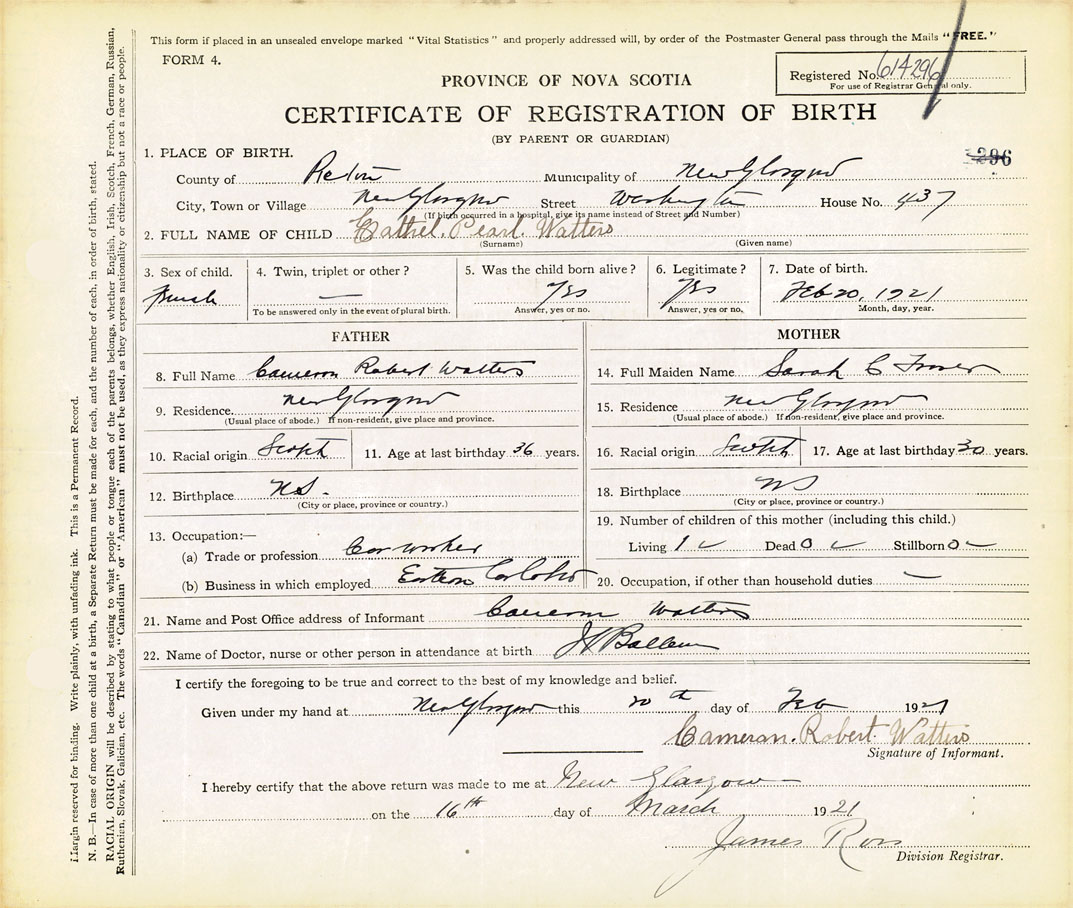 This form if placed in an unsealed envelope marked "Vital Statistics" and properly addressed will, by order of the Postmaster General pass through the Mails "FREE."
FORM 4.
Registered No. 614296
For use of Registrar General only.
PROVINCE OF NOVA SCOTIA
CERTIFICATE OF REGISTRATION OF BIRTH
(BY PARENT OR GUARDIAN)
1. PLACE OF BIRTH.
296
County of Pictou Municipality of New Glasgow
City, Town or Village New Glasgow Street Washington House No. 437
(If birth occurred in a hospital, give its name instead of Street and Number)
2. FULL NAME OF CHILD Cathel. Pearl. Watters
(Surname) (Given name)
3. Sex of child. 4. Twin, triplet or other? 5. Was the child born alive? 6. Legitimate? 7. Date of birth.
Female — Yes Yes Feb 20, 1921
To be answered only in the event of plural birth. Answer, yes or no. Answer, yes or no. Month, day, year.
FATHER
8. Full Name Cameron Robert Watters
9. Residence. New Glasgow
(Usual place of abode.) If non-resident, give place and province.
10. Racial origin Scotch 11. Age at last birthday 36 years.
12. Birthplace N.S.
(City or place, province or country.)
13. Occupation:—
(a) Trade or profession Car worker
(b) Business in which employed Eastern Car
MOTHER
14. Full Maiden Name Sarah C Fraser
15. Residence New Glasgow
(Usual place of abode.) If non-resident, give place and province.
16. Racial origin Scotch 17. Age at last birthday 30 years.
18. Birthplace NS
(City or place, province or country.)
19. Number of children of this mother (including this child.)
Living 1 Dead 0 Stillborn 0
20. Occupation, if other than household duties —
21. Name and Post Office address of Informant Cameron Watters
22. Name of Doctor, nurse or other person in attendance at birth
I certify the foregoing to be true and correct to the best of my knowledge and belief.
Given under my hand at New Glasgow this 20th day of Feb 1921
Cameron. Robert. Watters
Signature of Informant.
I hereby certify that the above return was made to me at New Glasgow
on the 16th day of March 1921
James Ross
Division Registrar.
Margin reserved for binding. Write plainly, with unfading ink. This is a Permanent Record.
N. B.—In case of more than one child at a birth, a Separate Return must be made for each, and the number of each, in order of birth, stated.
RACIAL ORIGIN will be described by stating to what people or tongue each of the parents belongs, whether English, Irish, Scotch, French, German, Russian,
Ruthenian, Slovak, Galician, etc. The words "Canadian" or "American" must not be used, as they express nationality or citizenship but not a race or people.